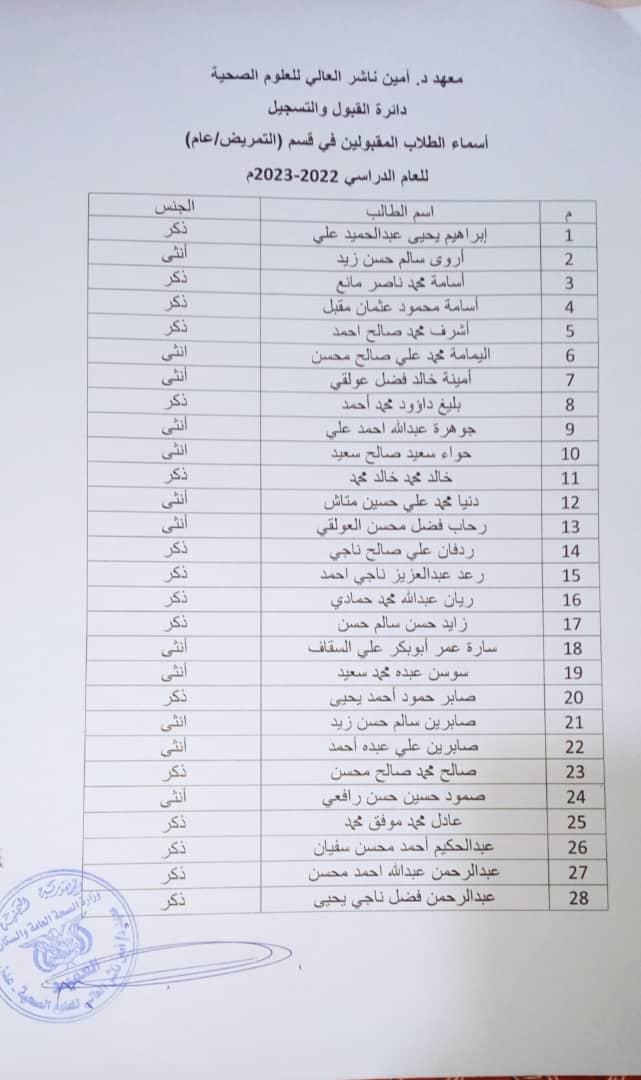 معهد د. أمين ناشر العالي للعلوم الصحية
دائرة القبول والتسجيل
أسماء الطلاب المقبولين في قسم (التمريض/عام)
للعام الدراسي 2022-2023م
م اسم الطالب الجنس
1 إبراهيم يحيى عبدالحميد علي ذكر
2 أروى سالم حسن زيد أنثى
3 أسامة محمد ناصر مانع ذكر
4 أسامة محمود عثمان مقبل ذكر
5 أشرف محمد صالح احمد ذكر
6 اليمامة محمد علي صالح محسن انثى
7 أمينة خالد فضل عولقي أنثى
8 بليغ داؤود محمد أحمد ذكر
9 جوهرة عبدالله احمد علي أنثى
10 حواء سعيد صالح سعيد انثى
11 خالد محمد خالد محمد ذكر
12 دنيا محمد علي حسين متاش أنثى
13 رحاب فضل محسن العولقي أنثى
14 ردفان علي صالح ناجي ذكر
15 رعد عبدالعزيز ناجي احمد ذكر
16 ريان عبدالله محمد حمادي ذكر
17 زايد حسن سالم حسن ذكر
18 سارة عمر أبوبكر علي السقاف أنثى
19 سوسن عبده محمد سعيد أنثى
20 صابر حمود أحمد يحيى ذكر
21 صابرين سالم حسن زيد انثى
22 صابرين علي عبده أحمد أنثى
23 صالح محمد صالح محسن ذكر
24 صمود حسين حسن رافعي أنثى
25 عادل محمد موفق محمد ذكر
26 عبدالحكيم أحمد محسن سفيان ذكر
27 عبدالرحمن عبدالله احمد محسن ذكر
28 عبدالرحمن فضل ناجي يحيى ذكر
وزارة الصحة العامة والسكان
العميد